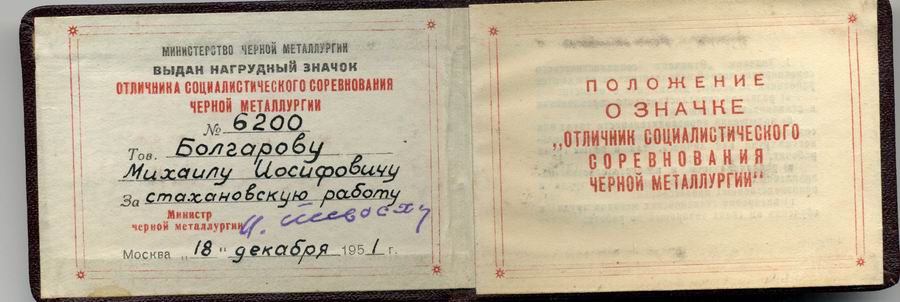 МИНИСТЕРСТВО ЧЕРНОЙ МЕТАЛЛУРГИИ
ВЫДАН НАГРУДНЫЙ ЗНАЧОК
ОТЛИЧНИКА СОЦИАЛИСТИЧЕСКОГО СОРЕВНОВАНИЯ
ЧЕРНОЙ МЕТАЛЛУРГИИ
№ 6200
Тов. Болгарову
Михаилу Иосифовичу
За стахановскую работу
Министр
черной металлургии
Москва „18" декабря 1951 г.
ПОЛОЖЕНИЕ
О ЗНАЧКЕ
„ОТЛИЧНИК СОЦИАЛИСТИЧЕСКОГО
СОРЕВНОВАНИЯ
ЧЕРНОЙ МЕТАЛЛУРГИИ"